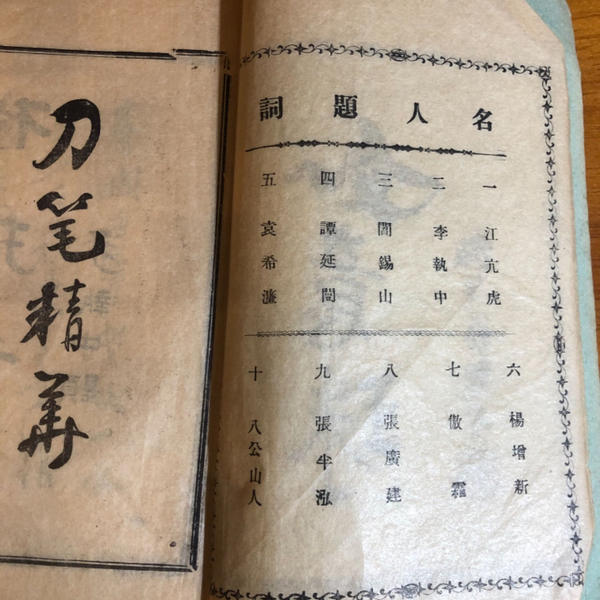 名人題詞
一 江亢虎
二 李執中
三 閻錫山
四 譚延闓
五 袁希濂
六 楊增新
七 傲霜
八 張廣建
九 張半泓
十 八公山人
刀笔精華